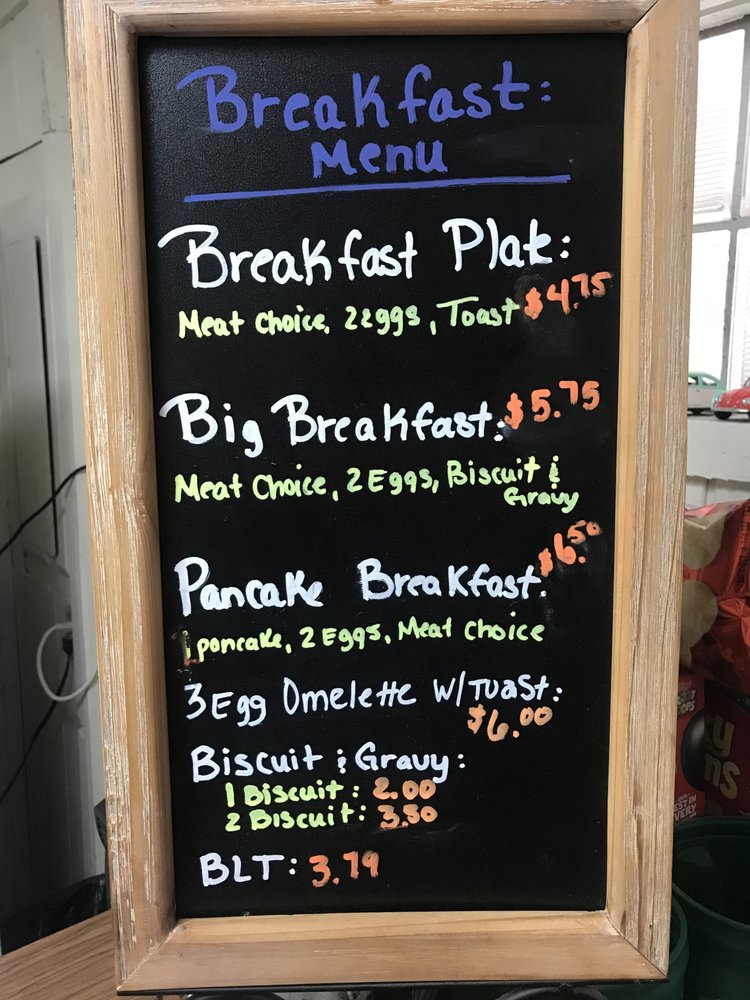 Breakfast:
Menu
Breakfast Plate:
Meat Choice, 2 Eggs, Toast $4.75
Big Breakfast: $5.75
Meat Choice, 2 Eggs, Biscuit &
Gravy
$6.50
Pancake Breakfast:
1 pancake, 2 Eggs, Meat Choice
3 Egg Omelette W/Toast:
$6.00
Biscuit & Gravy:
1 Biscuit: 2.00
2 Biscuit: 3.50
BLT: 3.79